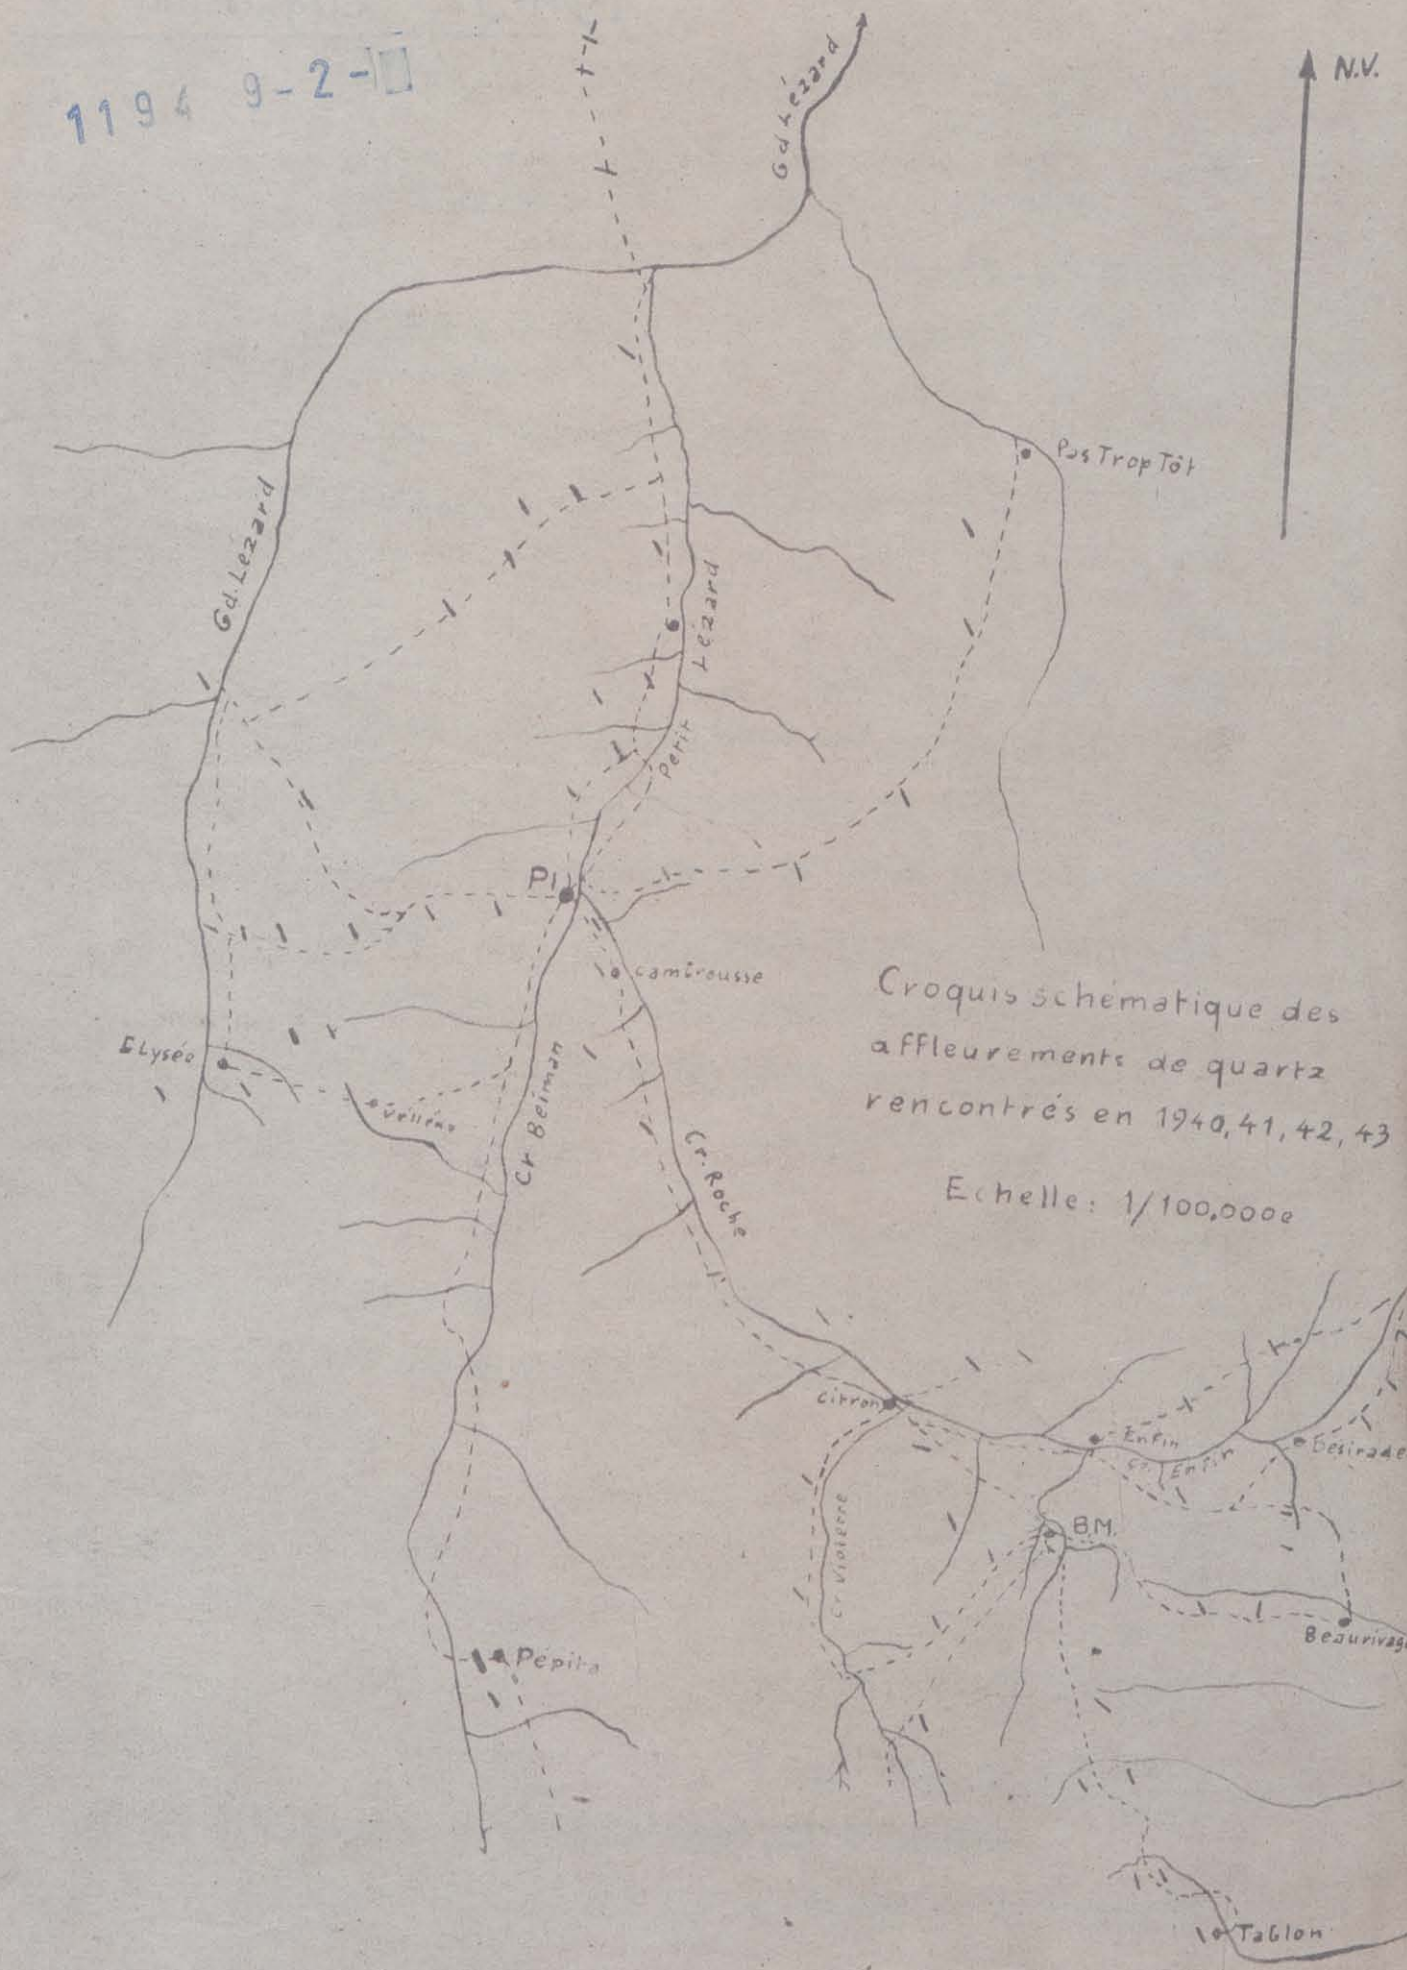 1194 9-2-
Gd Lézard
N.V.
Pas Trop Tôt
Gd. Lézard
Petit Lézard
P1
camtrousse
Croquis schématique des
affleurements de quartz
rencontrés en 1940, 41, 42, 43
Echelle: 1/100.000e
Elysée
Cr Beiman
Cr. Roche
citron
Enfin
Cr. Enfin
Désirade
B.M.
Cr. Violette
Beaurivage
Pépita
Tablon